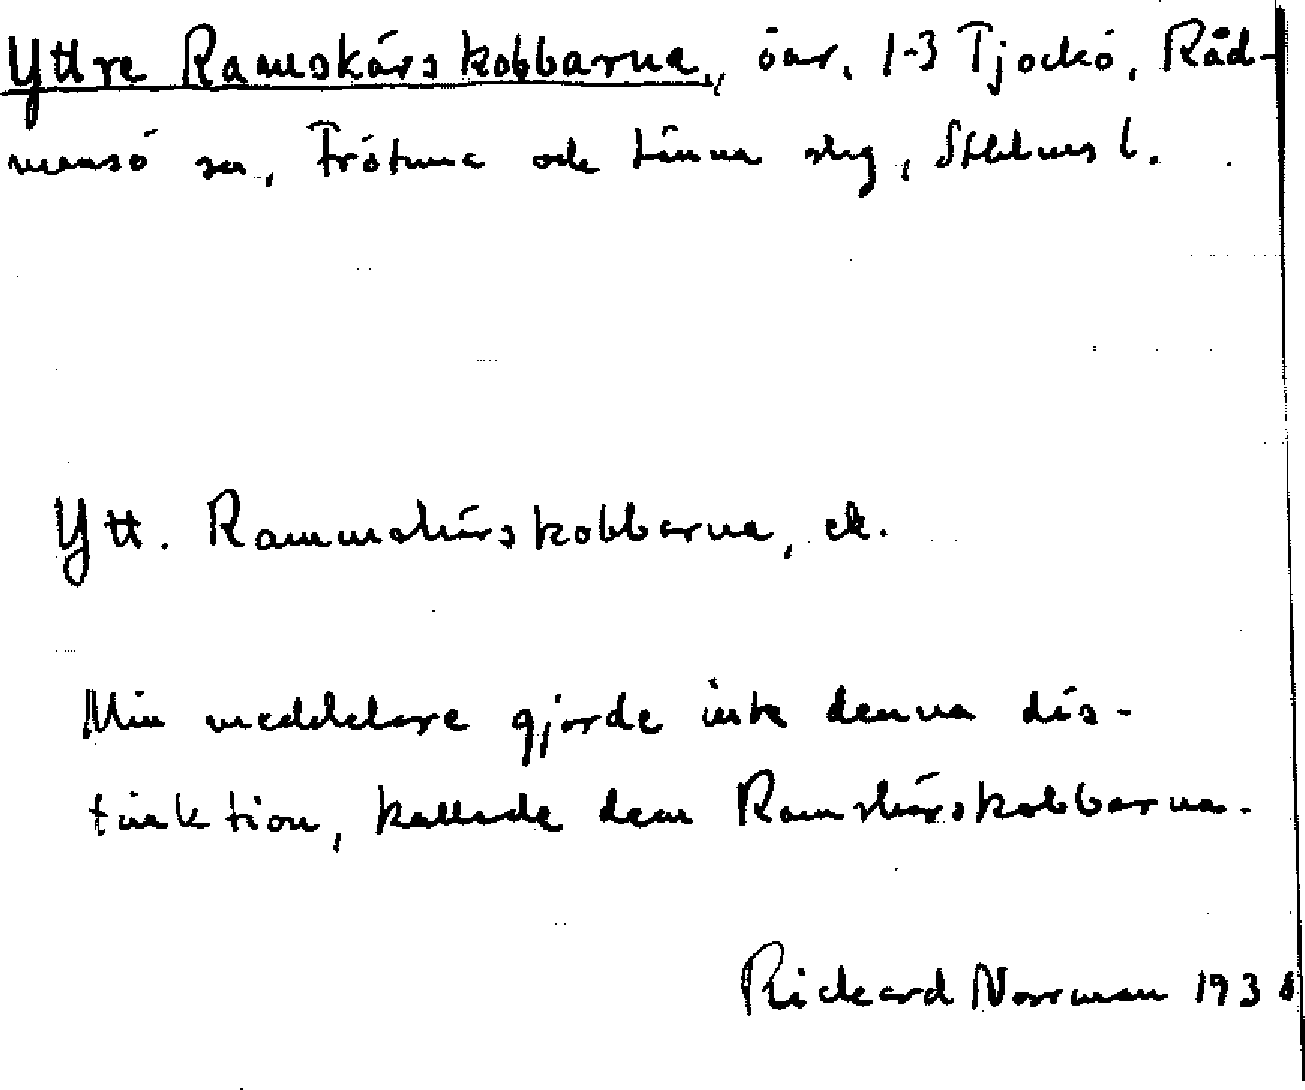 Yttre Ramskärskobbarna, öar, 1-3 Tjockö, Råd-
mansö sn, Frötuna och Länna slg, Sthlms l.
Ytt. Rammskärskobbarna, ek.
Min meddelare gjorde inte denna dis-
tinktion, kallade dem Ramskärskobbarna.
Rickard Norrman